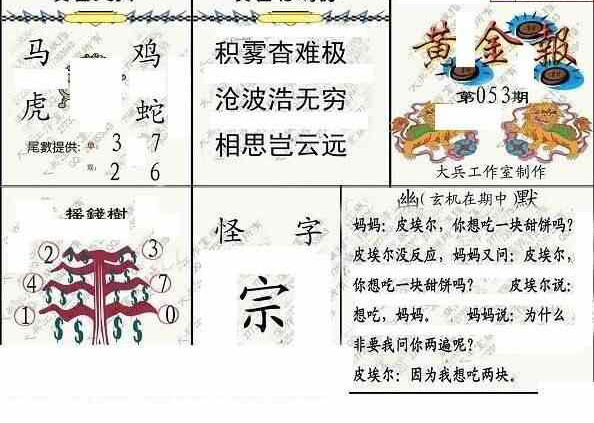 马 鸡
虎 蛇
尾數提供: 单: 3 7
双: 2 6
积雾杳难极
沧波浩无穷
相思岂云远
黄金報
第053期
大兵工作室制作
摇錢樹
② ③
④ ⑦
① ⓪
怪 字
宗
幽(玄机在期中)默
妈妈: 皮埃尔, 你想吃一块甜饼吗?
皮埃尔没反应, 妈妈又问: 皮埃尔,
你想吃一块甜饼吗? 皮埃尔说:
想吃, 妈妈。 妈妈说: 为什么
非要我问你两遍呢?
皮埃尔: 因为我想吃两块。